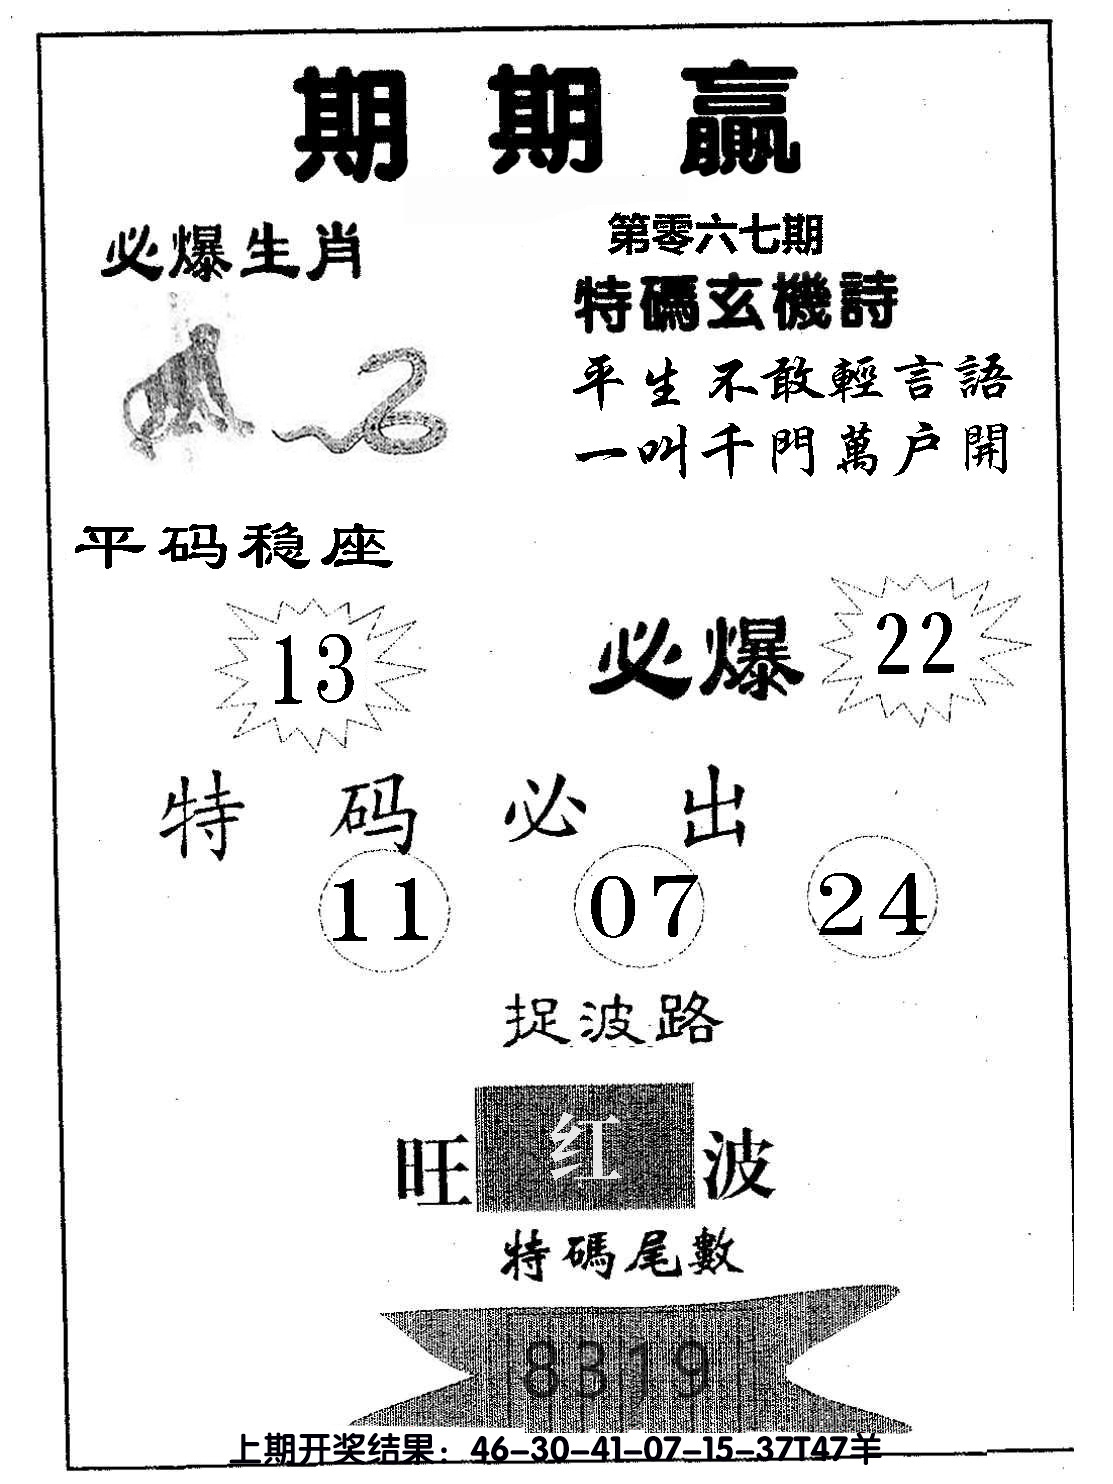 期期赢
必爆生肖
第零六七期
特碼玄機詩
平生不敢輕言語
一叫千門萬户開
平码稳座
13
必爆 22
特码必出
11 07 24
捉波路
旺红波
特碼尾數
8319
上期开奖结果：46-30-41-07-15-37T47羊